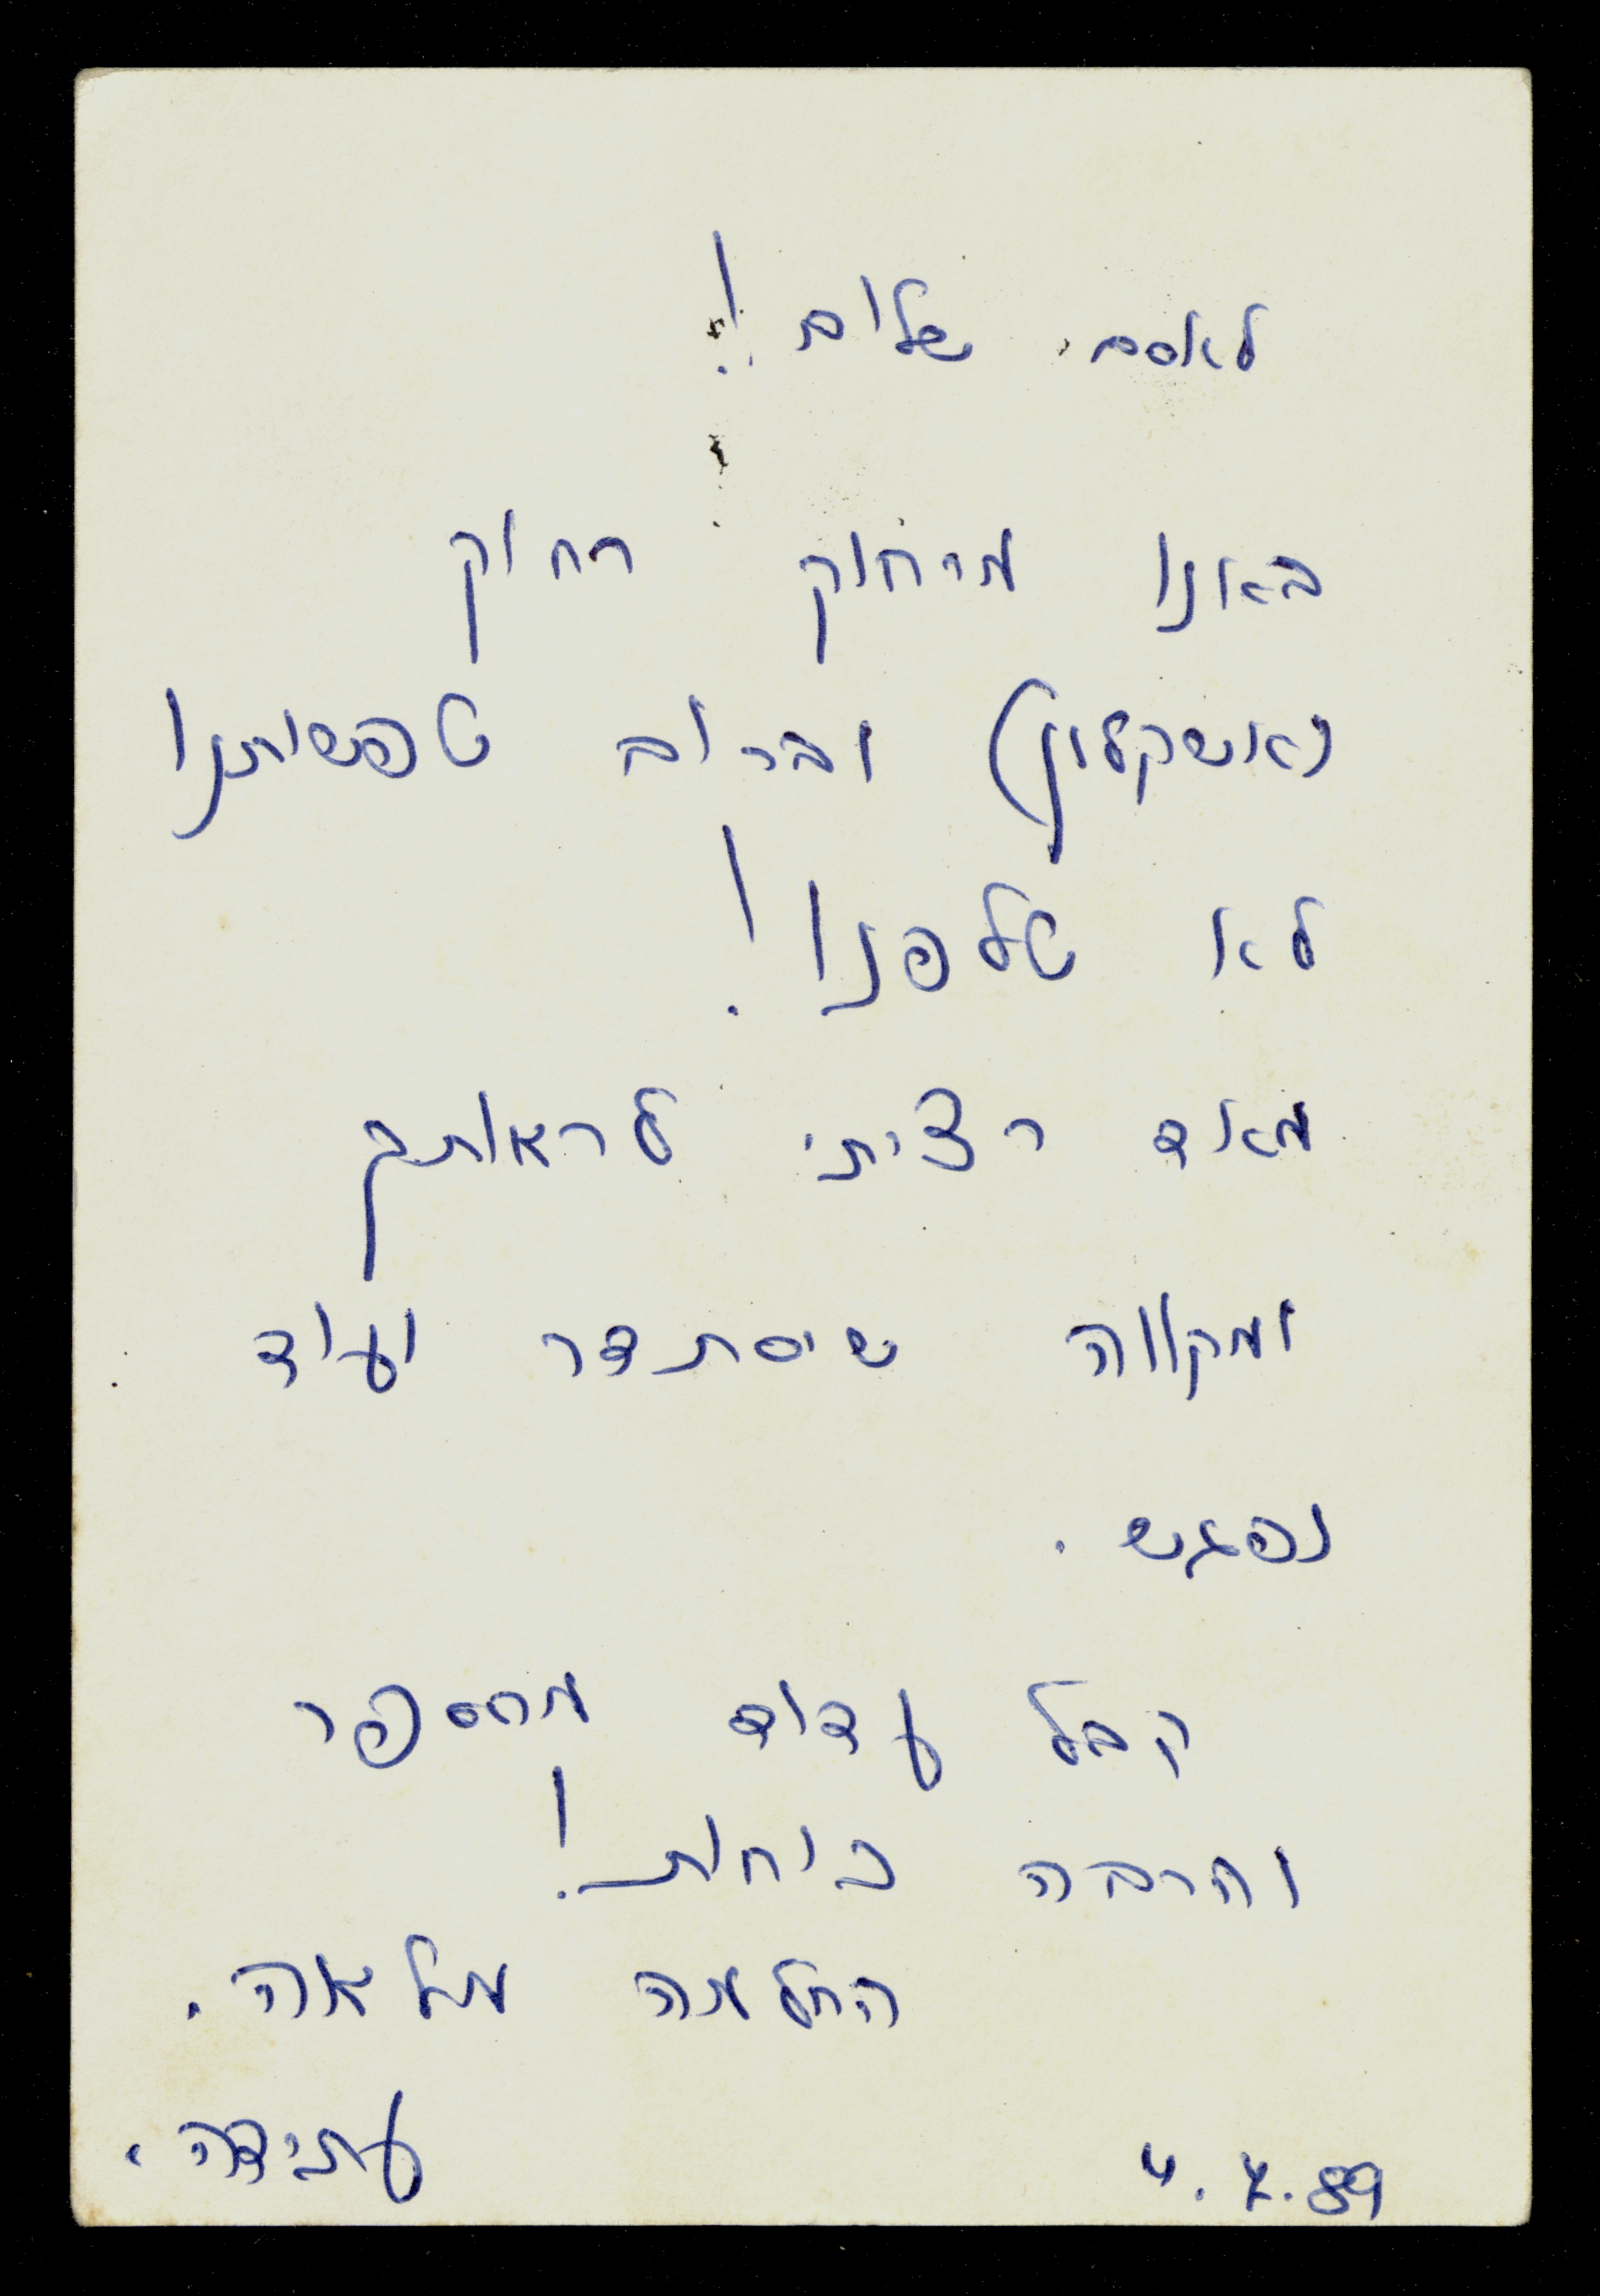 לאסם שלום!
באנו מרחוק רחוק
(אשקלון) וברוב טפשותנו
לא טלפנו!
מאד רציתי לראותך
ומקווה שיסתדר ועוד
נפגש.
קבל עדוד מהספר
והרבה כוחות!
החלמה מלאה.
עמידה.
4.4.89